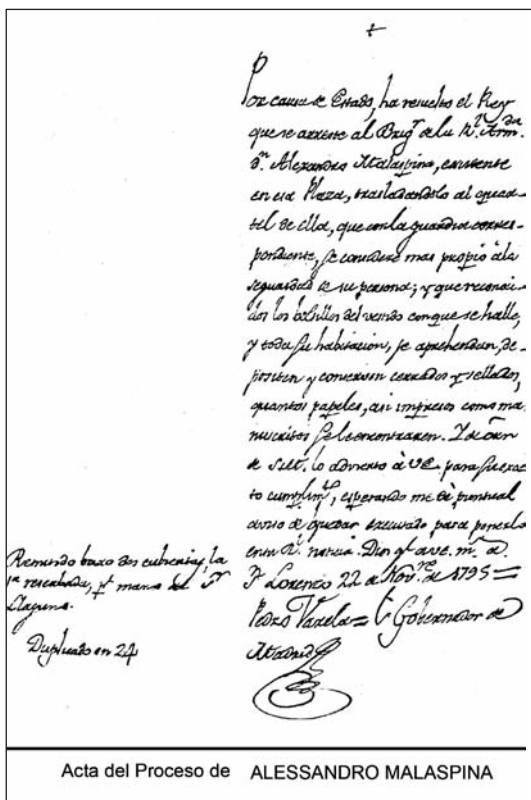 Por causa de Estado, ha resuelto el Rey
que se arreste al Brigr. de la Rl. Armda.
Dn. Alexandro Malaspina, existente
en esa Plaza, trasladandolo al quar-
tel de ella, que con la guardia corres-
pondiente, se considere mas propio à la
seguridad de su persona; y que reconoci-
dos los bolsillos del vestido con que se halle,
y toda su habitacion, se aprehendan, de-
positen y conserven cerrados y sellados,
quantos papeles, asi impresos como ma-
nuscritos se le encontraren. Y de òrn
de S.M. lo advierto à V.E. para su exac-
to cumplimto., esperando me dè puntual
aviso de quedar executado para ponerlo
en su Rl. noticia. Dios gue. a V.E. ms. as.
Sn. Lorenzo 22 de Novre. de 1795 =
Pedro Varela = Sr. Gobernador de
Madrid
Remitido baxo dos cubiertas, la
1a reservada, pr. mano del Sr.
Llaguno.
Duplicado en 24
Acta del Proceso de ALESSANDRO MALASPINA